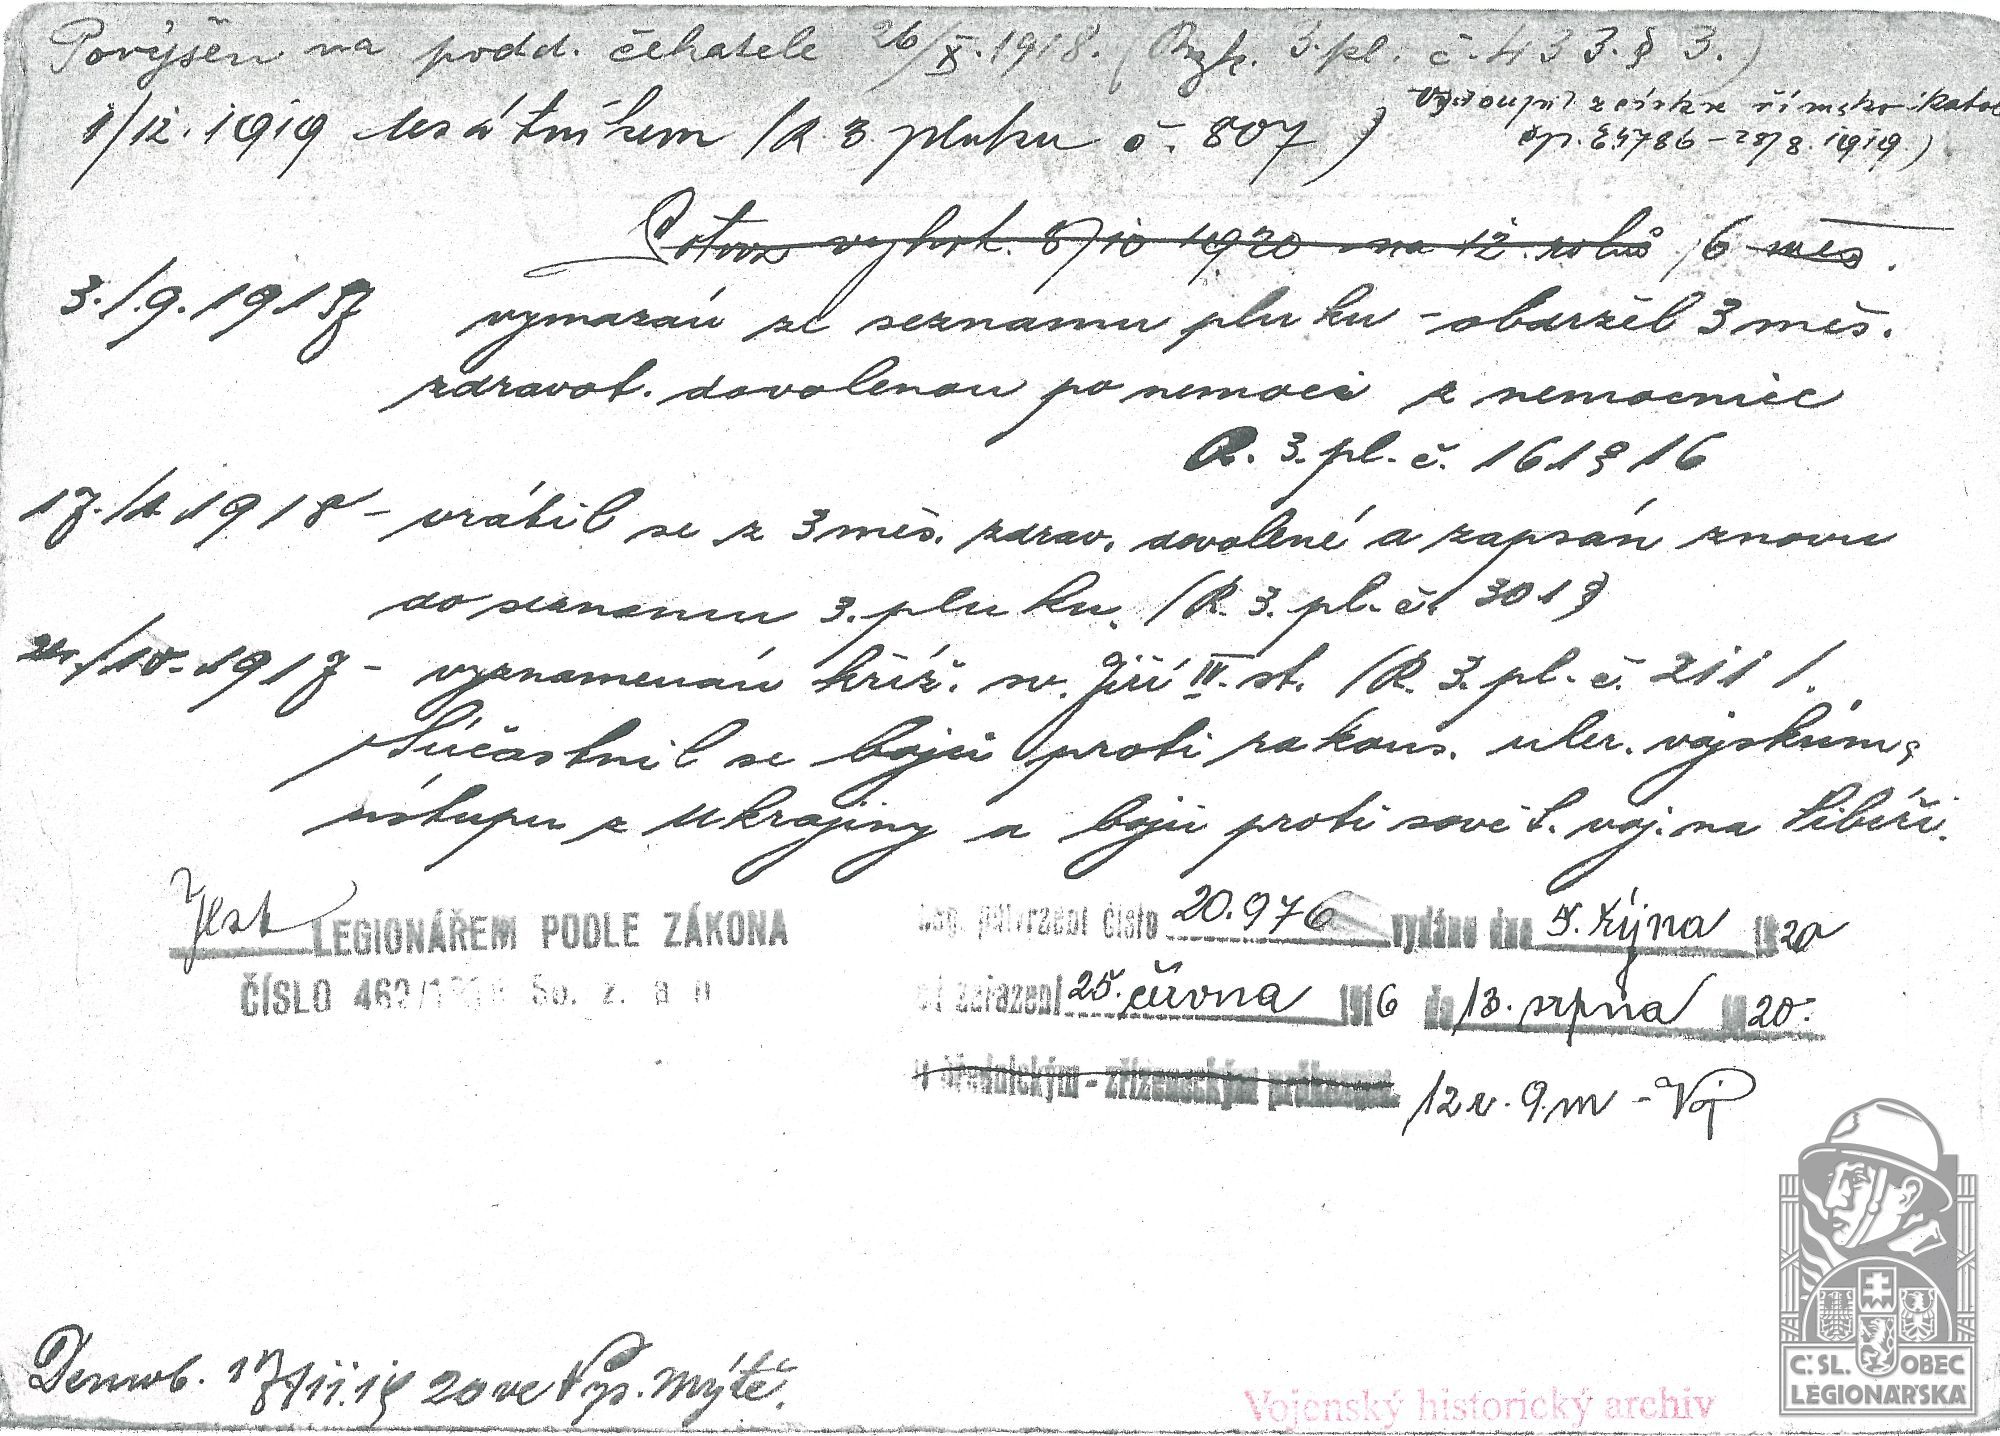 Povýšen na podd. čekatele 26/X. 1918. (Rozk. 3. pl. č. 433. § 3.)
Vystoupil z církve římsko-katol
1/12. 1919 desátníkem /R. 3 pluku č. 807)
čp. 64786 - 28/8. 1919.)
8/10 1920 na 12 roků, 6 měs.
3./9. 1917 vymazán ze seznamu pluku - obdržel 3 měs.
zdravot. dovolenou po nemoci z nemocnice
R. 3. pl. č. 161 § 16
17./1. 1918 - vrátil se z 3 měs. zdrav. dovolené a zapsán znovu
do seznamu 3. pluku. /R. 3. pl. č. 301 §
/10. 1917 - vyznamenán kříž. sv. Jiří IV. st. /R. 3. pl. č. 211 /.
Súčastnil se bojů proti rakous. uher. vojskům,
ústupu z Ukrajiny a bojů proti sovět. voj. na Sibíři.
Jest LEGIONÁŘEM PODLE ZÁKONA
ČÍSLO 462/1919 Sb. z. a n
Leg. potvrzení číslo 20.976 vydáno dne 5. října 1920
od zařazení 25. června 1916 do 13. srpna 1920.
úřednickým - zřízeneckým průkazem. 12 r. 9. m - Voj
Demob. 17/11. 1920 ve Vys. Mýtě.
Vojenský historický archiv
Č.SL. OBEC
LEGIONÁŘSKÁ